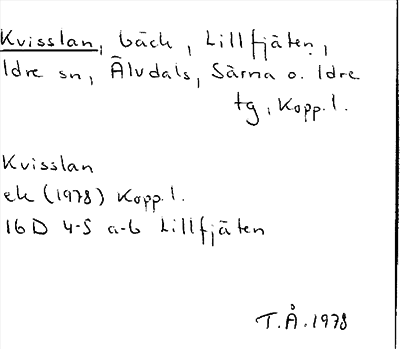 Kvisslan, bäck, Lillfjäten,
Idre sn, Älvdals, Särna o. Idre
tg, Kopp.l.
Kvisslan
ek (1978) Kopp.l.
16D 4-5 a-b Lillfjäten
T.Å. 1978